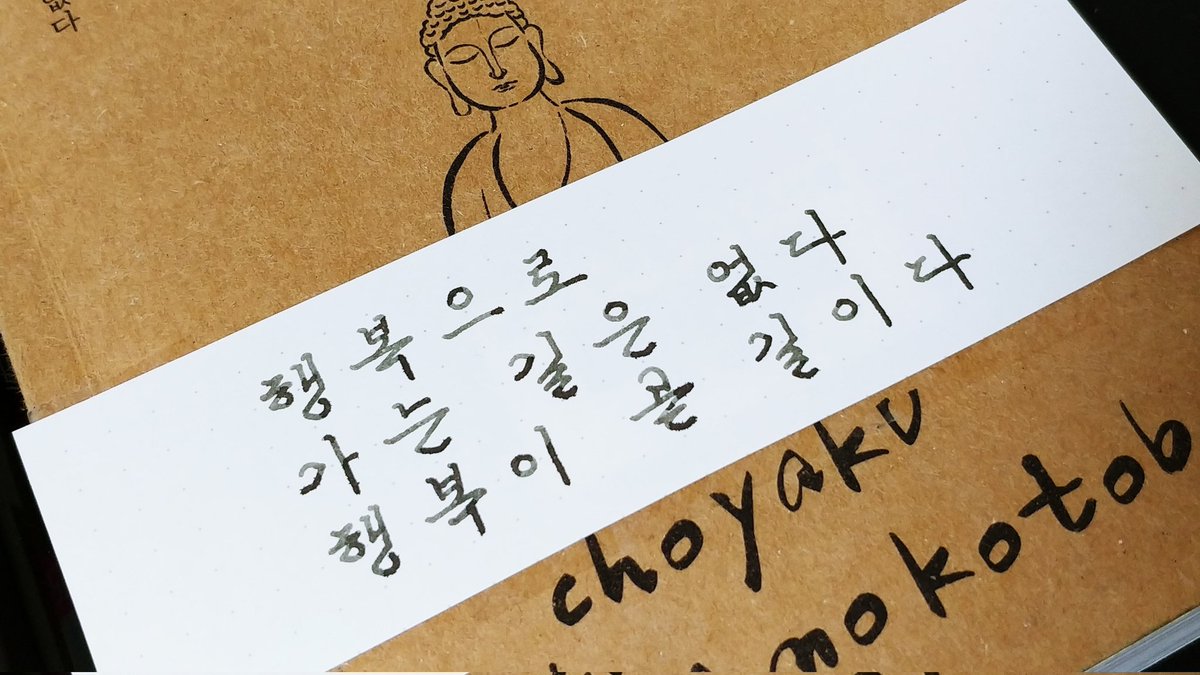 없다
행복으로
가는 길은 없다
행복이 곧 길이다
choyaku
nokotob